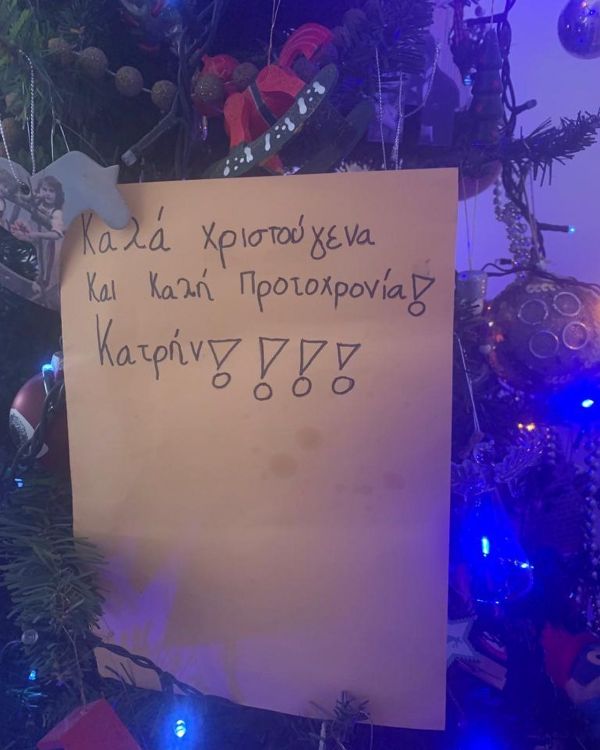 Καλά χριστούγενα
Και Καλή Προτοχρονία!
Κατρήν!!!!